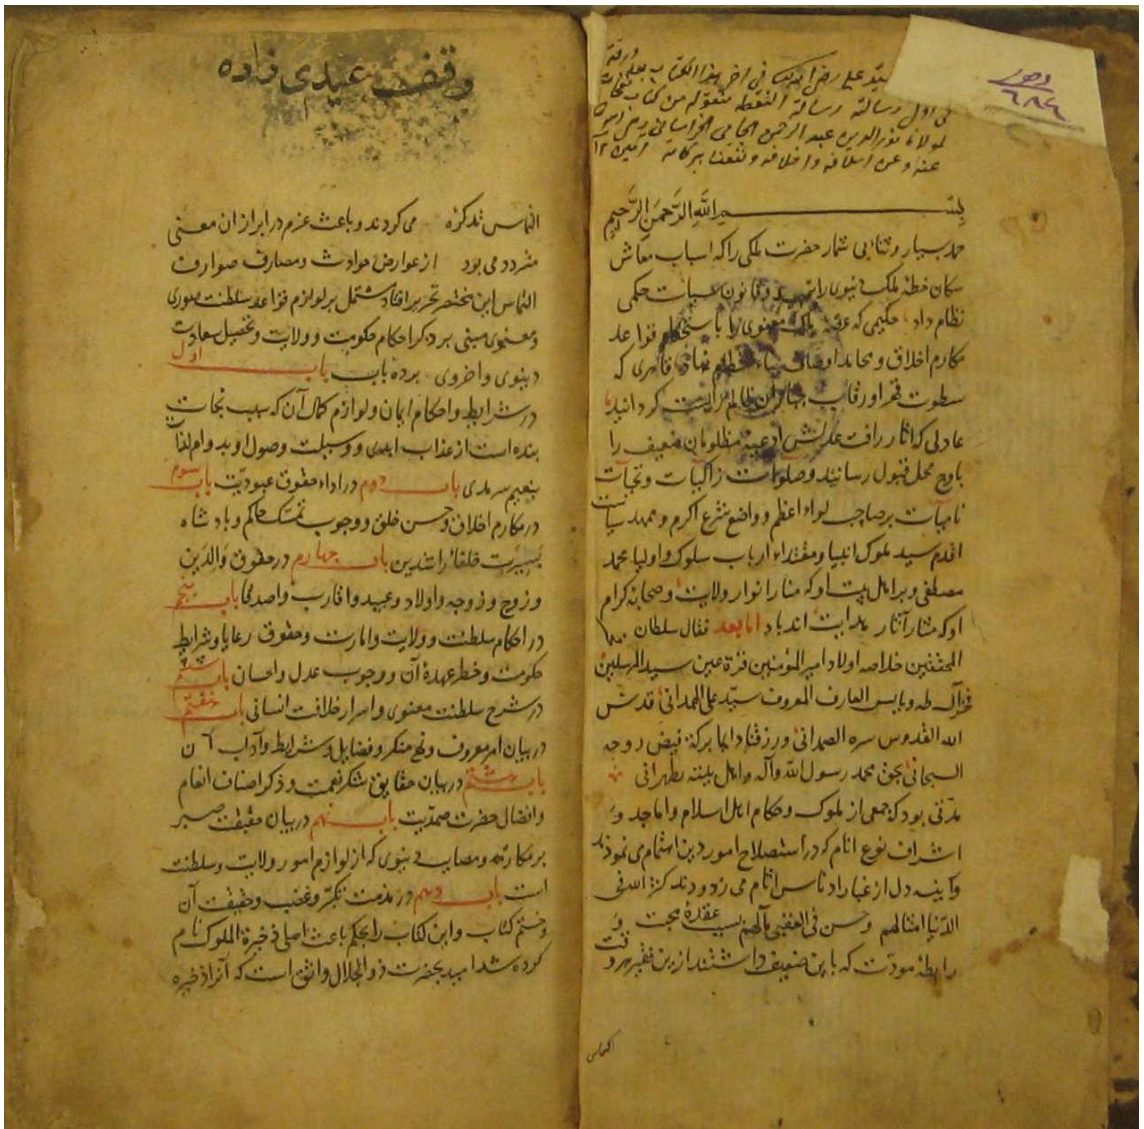 سید علی رضی الله فی اخر هذا الکتاب
فی اول رسالة رسالة النقطة منقوله من کتاب نفحات
لمولانا نور الدین عبد الرحمن الجامی الخراسانی رضی الله
عنه وعن اسلافه واخلافه ونفعنا ببرکاته امین ۱۲
بسم الله الرحمن الرحیم
حمد بسیار وثنا بی شمار حضرت ملکی را که اسباب معاش
سکان خطهٔ ملک دنیوی را بتمهید قانون سیاست حکمی
نظام داد حکیمی که ملک معنوی را باستحکام قواعد
مکارم اخلاق ومحامد اوصاف قاهری که
سطوت قهر او رقاب جباران ظالم را پست کردانید
عادلی که اثار رافت عدلش ادعیهٔ مظلومان ضعیف را
باوج محل قبول رسانید وصلوات زاکیات وتحیات
نامیات بر صاحب لواء اعظم وواضع شرع اکرم وممهد سیاست
اقدم سید ملوک انبیا ومقتداء ارباب سلوک واولیا محمد
مصطفی وبر اهل بیت او که منار انوار ولایت وصحابه کرام
او که منار آثار هدایت اند باد اما بعد فقال سلطان
المحققین خلاصه اولاد امیر المؤمنین قرة عین سید المرسلین
فخر آل طه ویایس العارف المعروف سید علی الهمدانی قدس
الله القدوس سره الصمدانی ورزقنا دایما برکة فیض روحه
السبحانی بحق محمد رسول الله وآله واهل بیته
مدتی بود که جمعی از ملوک وحکام اهل اسلام واماجد و
اشراف نوع انام که در استصلاح امور دین اهتمام می نمودند
وآینه دل از غبار ادناس اثام می زدودند کثر الله فی
الدنیا امثالهم وحسن فی العقبی مآلهم بسبب عقدهٔ محبت و
رابطهٔ مودت که باین ضعیف داشتند ازین فقیر بهر وقت
التماس
وقف عیدی زاده
التماس تذکره می کردند وباعث عزم در ابراز ان معنی
متردد می بود از عوارض حوادث ومصارف صوارف
التماس این مختصر تحریر افتاد مشتمل بر لوازم قواعد سلطنت صوری
ومعنوی مبنی بر ذکر احکام حکومت وولایت وتحصیل سعادت
دنیوی واخروی بر ده باب باب اول
در شرایط واحکام ایمان ولوازم کمال آن که سبب نجات
بنده است از عذاب ابدی ووسیلت وصول او بدوام لقا
بنعیم سرمدی باب دوم در اداء حقوق عبودیت باب سوم
در مکارم اخلاق وحسن خلق ووجوب تمسک حاکم وپادشاه
بسیرت خلفاء راشدین باب چهارم در حقوق والدین
وزوج وزوجه واولاد وعبید واقارب واصدقا باب پنجم
در احکام سلطنت وولایت وامارت وحقوق رعایا وشرایط
حکومت وخطر عهدهٔ آن ووجوب عدل واحسان باب ششم
در شرح سلطنت معنوی واسرار خلافت انسانی باب هفتم
در بیان امر معروف ونهی منکر وفضایل وشرایط وآداب آن
باب هشتم در بیان حقایق شکر نعمت وذکر اصناف انعام
وافضال حضرت صمدیت باب نهم در بیان حقیقت صبر
بر مکاره ومصایب دنیوی که از لوازم امور ولایت وسلطنت
است باب دهم در مذمت تکبر وغضب وحقیقت آن
وختم کتاب واین کتاب را بحکم باعث اصلی ذخیرة الملوک نام
کرده شد امید بحضرت ذو الجلال واثق است که آنرا ذخیره